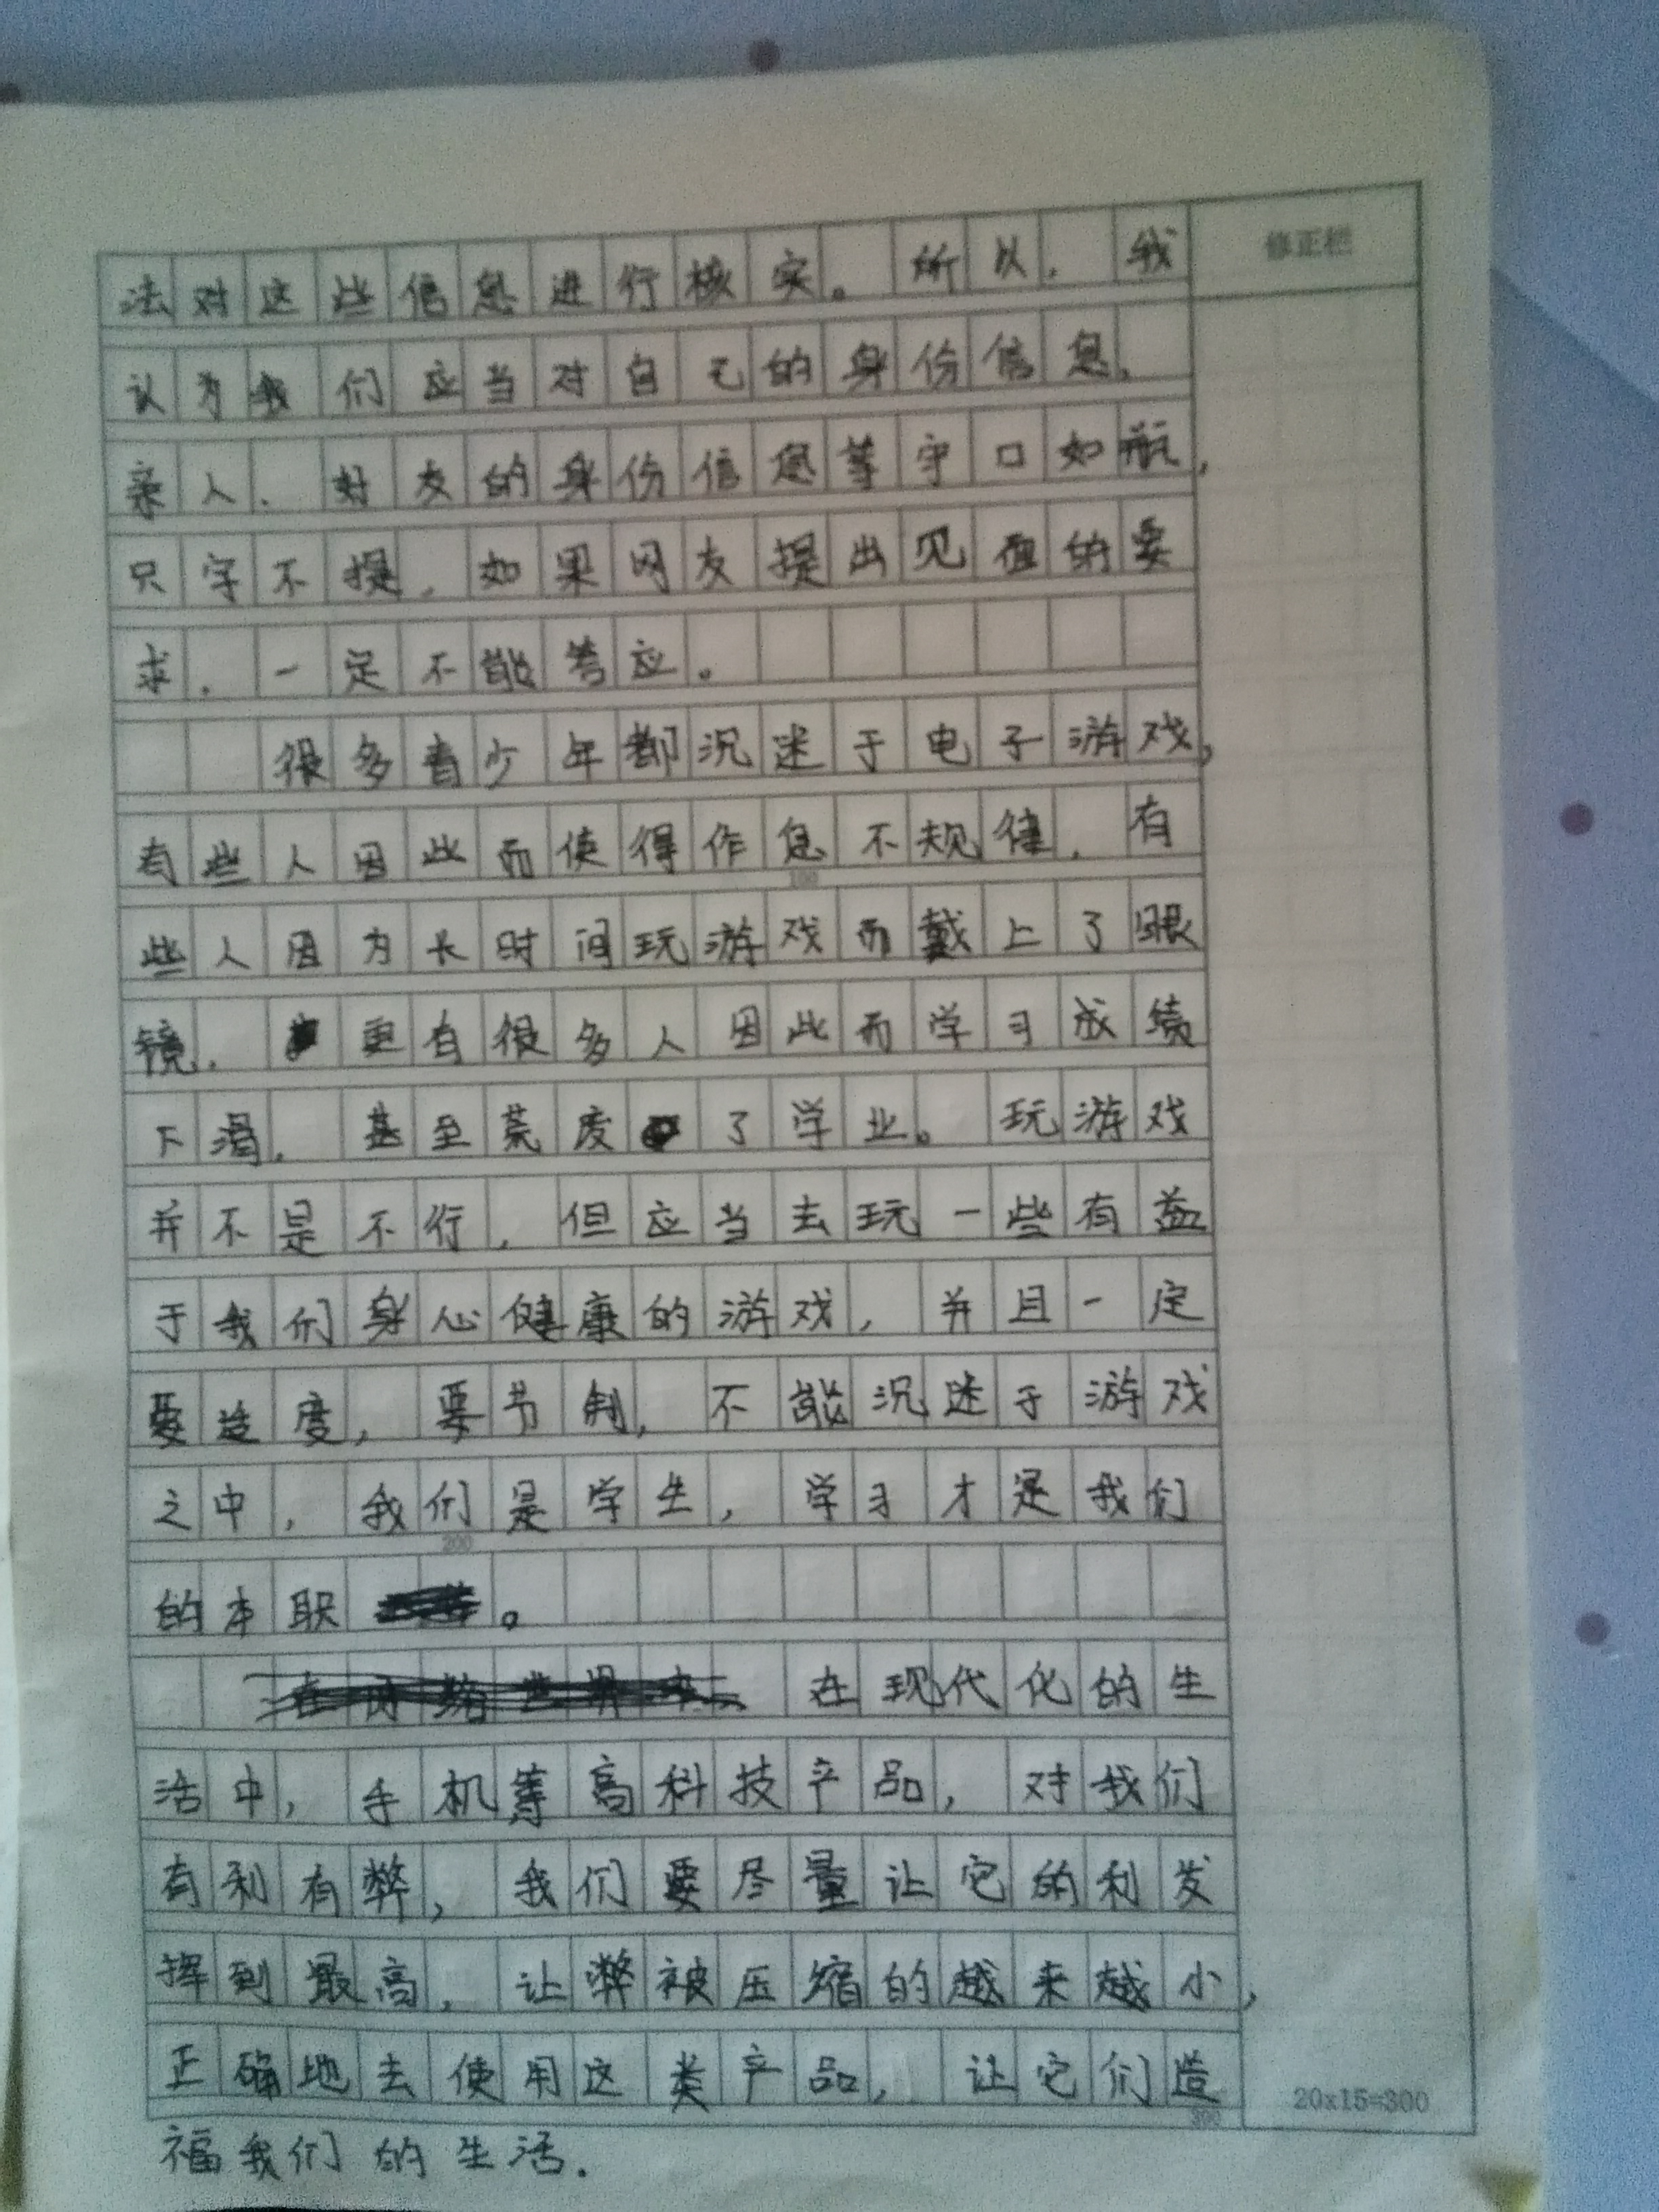 修正栏
法对这些信息进行核实。所以，我
认为我们应当对自己的身份信息、
亲人、好友的身份信息等守口如瓶，
只字不提，如果网友提出见面的要
求，一定不能答应。
很多青少年都沉迷于电子游戏，
有些人因此而使得作息不规律，有
100
些人因为长时间玩游戏而戴上了眼
镜，更有很多人因此而学习成绩
下滑，甚至荒废了学业。玩游戏
并不是不行，但应当去玩一些有益
于我们身心健康的游戏，并且一定
要适度，要节制，不能沉迷于游戏
之中，我们是学生，学习才是我们
200
的本职。
在现代化的生
活中，手机等高科技产品，对我们
有利有弊，我们要尽量让它的利发
挥到最高，让弊被压缩的越来越小，
正确地去使用这类产品，让它们造
300
20x15=300
福我们的生活.